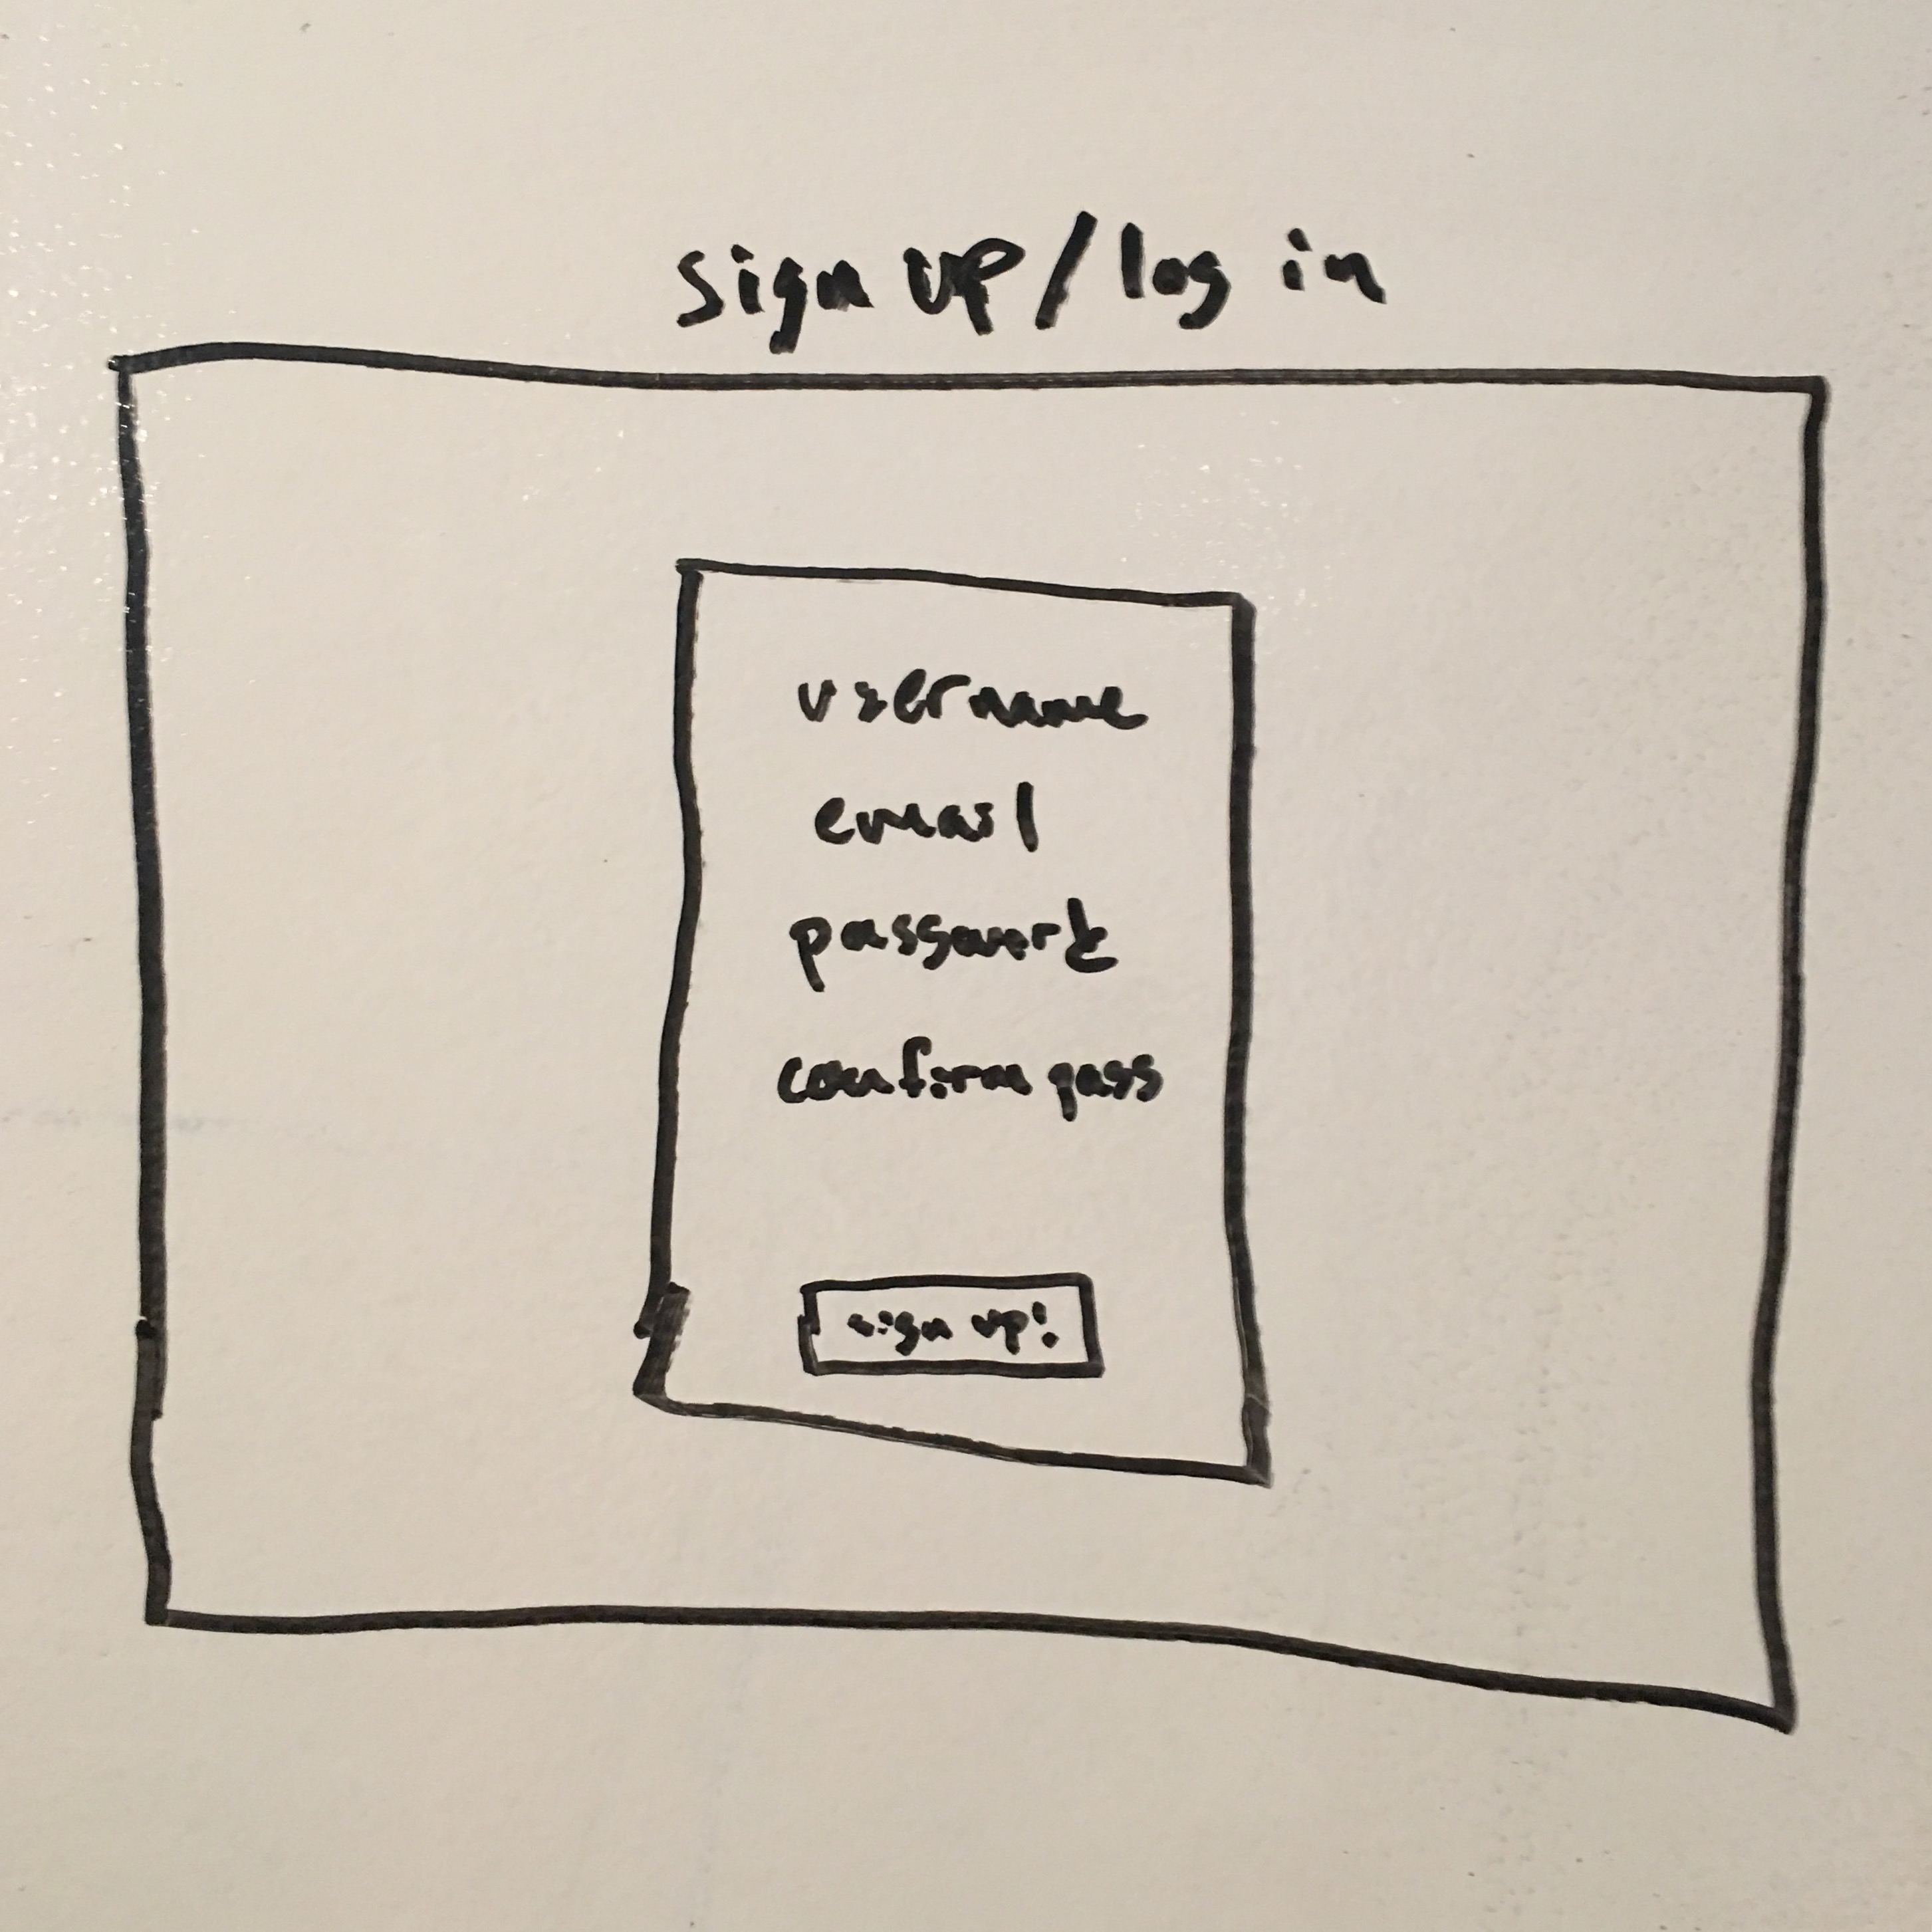 sign up/log in
username
email
password
confirm pass
sign up!